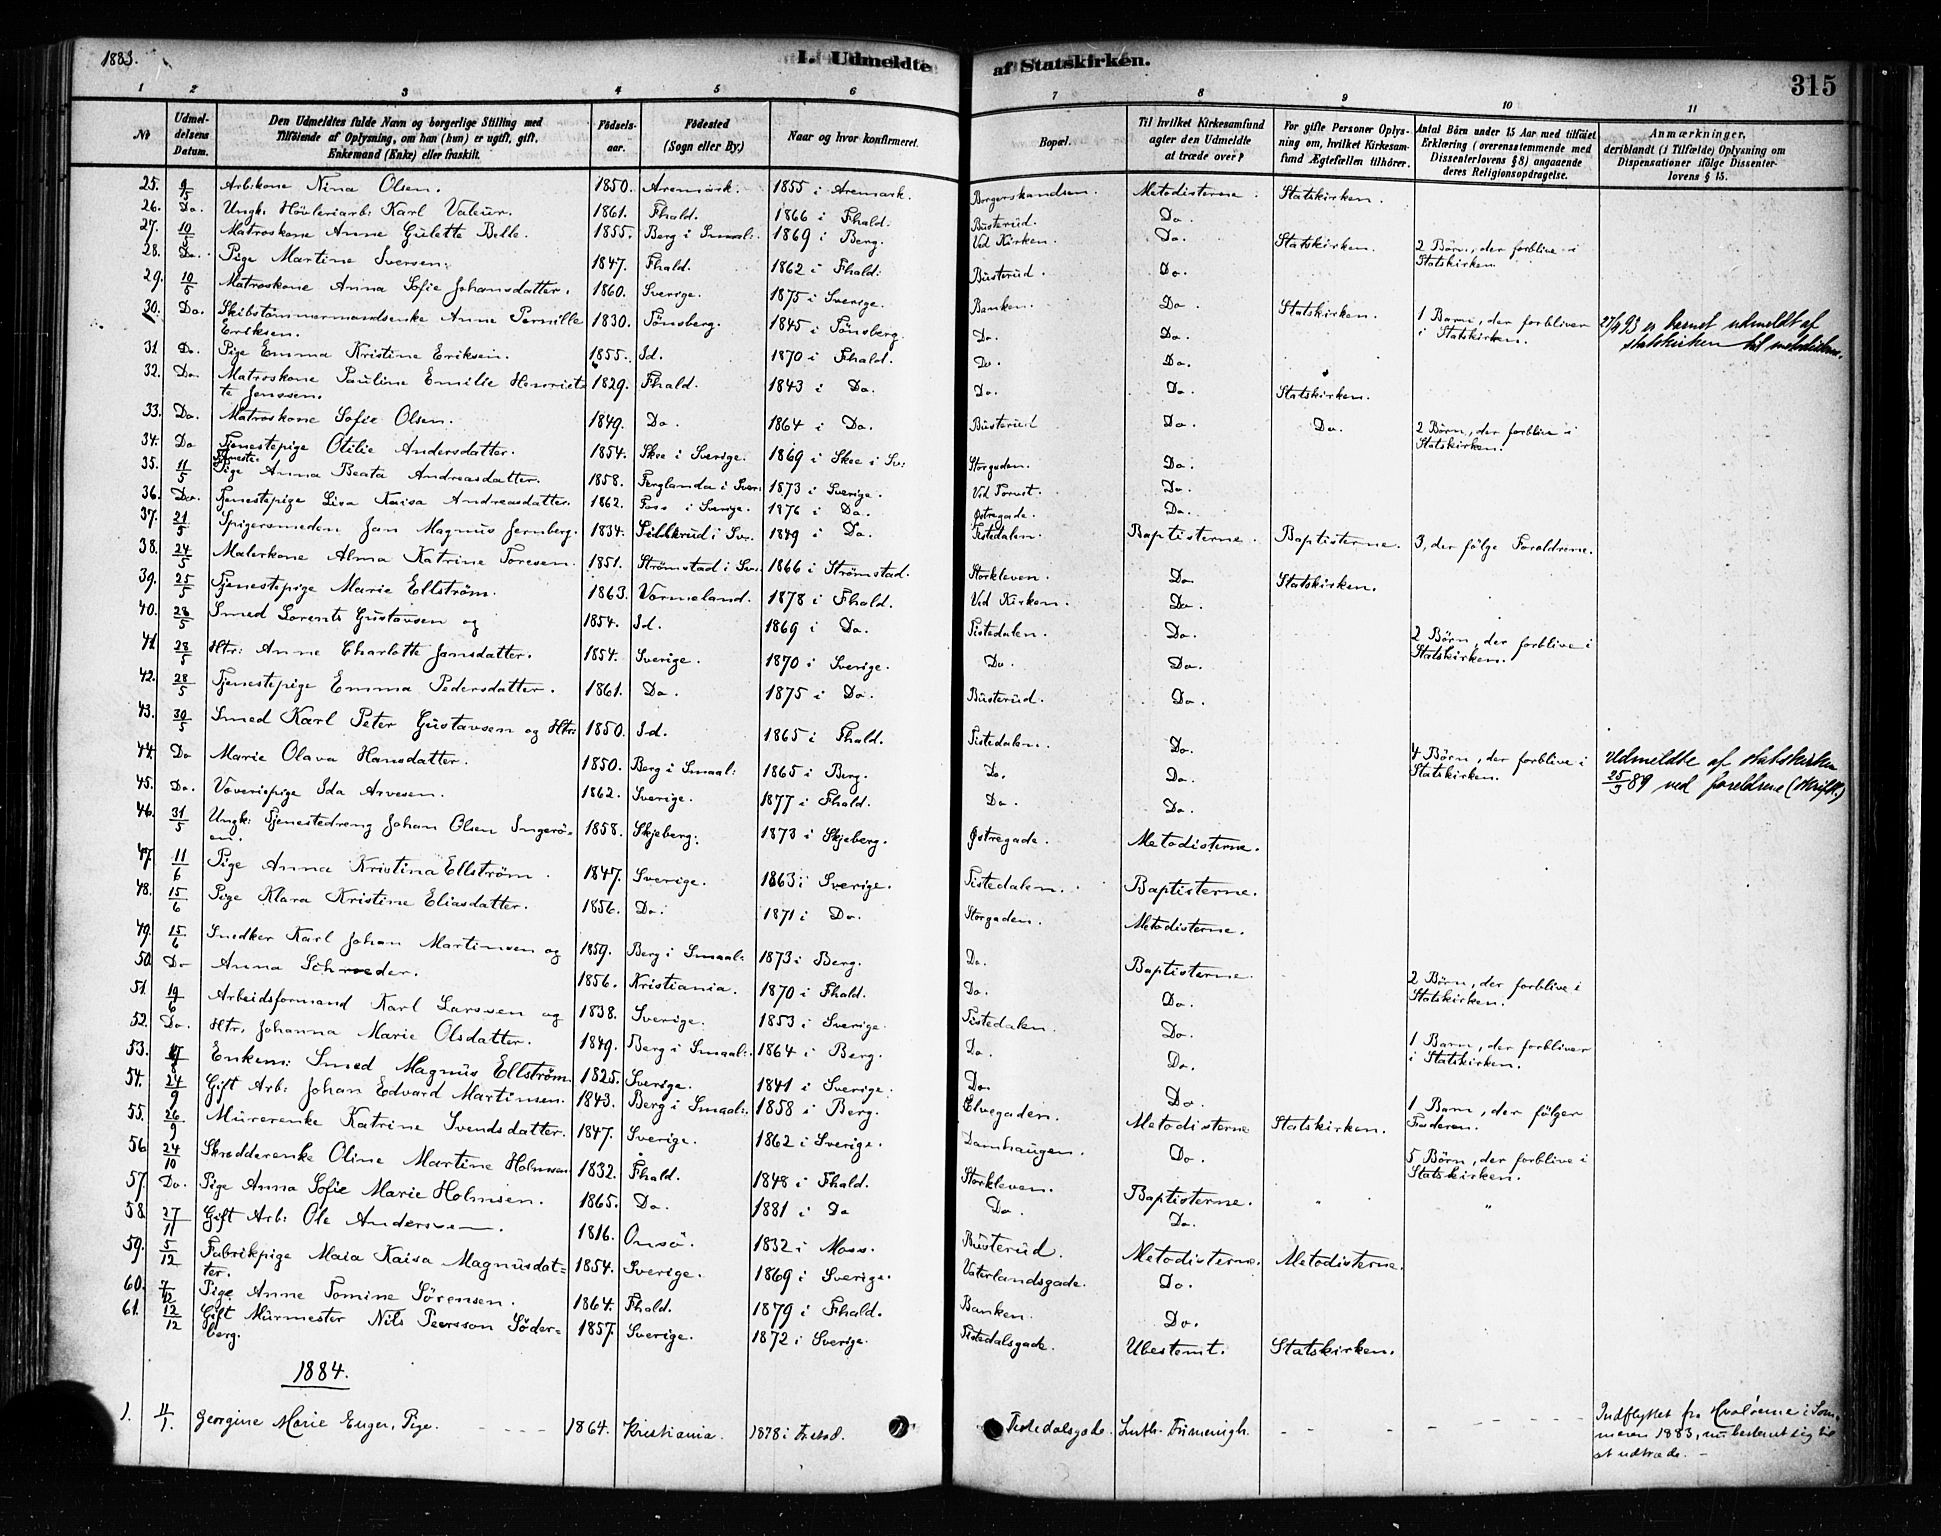 1883.
I. Udmeldte af Statskirken.
315
1 2 3 4 5 6 7 8 9 10 11
No
Udmeldelsens Datum.
Den Udmeldtes fulde Navn og borgerlige Stilling med Tilföiende af Oplysning, om han (hun) er ugift, gift, Enkemand (Enke) eller fraskilt.
Fødselsaar.
Fødested (Sogn eller By.)
Naar og hvor konfirmeret.
Bopæl.
Til hvilket Kirkesamfund agter den Udmeldte at træde over?
For gifte Personer Oplysning om, hvilket Kirkesamfund Ægtefællen tilhörer.
Antal Börn under 15 Aar med tilföiet Erklæring (overensstemmende med Dissenterlovens § 8) angaaende deres Religionsopdragelse.
Anmærkninger, deriblandt (i Tilfælde) Oplysning om Dispensationer ifölge Dissenterlovens § 15.
25. 9/5 Arb.kone Nina Olsen. 1850. Aremark. 1855 i Aremark. Metodisterne. Statskirken.
26. Do. Ungk. Høvleriarb: Karl Valeur. 1861. Fhald. 1866 i Fhald. Busterud. Do.
27. 10/5 Matroskone Anne Gulette Belle. 1855. Berg i Smaal: 1869 i Berg. Ved Kirken. Do. Statskirken. 2 Børn, der forblive i Statskirken.
28. Do. Pige Martine Iversen. 1847. Fhald. 1862 i Fhald. Busterud. Do.
29. 10/5 Matroskone Anna Sofie Johansdatter. 1860. Sverige. 1875 i Sverige. Banken. Do. Statskirken. 1 Barn, der forbliver i Statskirken. 27/ 93 er barnet udmeldt af statskirken til metodisterne.
30. Do. Skibstømmermandsenke Anne Pernille Eriksen. 1830. Tönsberg. 1845 i Tönsberg. Do. Do.
31 Do. Pige Emma Kristine Eriksen. 1855. Id. 1870 i Fhald. Do. Do.
32. Do. Matroskone Pauline Emilie Henriette Jenssen. 1829. Fhald. 1843 i Do. Do. Do. Statskirken.
33. Do. Matroskone Sofie Olsen. 1849. Do. 1864 i Do. Busterud Do. Do. 2 Børn, der forblive i Statskirken.
34. Do Tjenestepige Otilie Andersdatter. 1854. Skee i Sverige. 1869 i Skee i Sv: Storgaden. Do.
35. 11/5 Tjeneste Pige Anna Beata Andreasdatter. 1858. Ferglanda i Sver: 1873 i Sverige. Ved Torvet. Do.
36. Do. Tjenestepige Lisa Kaisa Andreasdatter. 1862. Foss i Sverige. 1876 i Do. Østregade. Do.
37. 21/5 Spigersmeden Jan Magnus Jernberg. 1834. i Sv. 1849 i Do. Tistedalen. Baptisterne. Baptisterne. 3, der følge Forældrene.
38. 24/5 Malerkone Alma Katrine Toresen. 1851. Strömstad i Sv. 1866 i Strömstad. Storkleven. Do. Statskirken.
39. 25/5 Tjenestepige Marie Ellström. 1863. Vermeland. 1878 i Fhald. Ved Kirken. Do.
40. 28/5 Smed Lorents Gustavsen og 1854. Id. 1869 i Do. Tistedalen. Do. 2 Børn, der forblive i Statskirken.
41. 28/5 Htr: Anne Charlotte Jansdatter. 1854. Sverige. 1870 i Sverige. Do. Do.
42. 28/5 Tjenestepige Emma Pedersdatter. 1861. Do. 1875 i Do. Busterud. Do.
43. 30/5 Smed Karl Peter Gustavsen og Htr: 1850. Id. 1865 i Fhald. Tistedalen. Do. 4 Børn, der forblive i Statskirken. Udmeldte af statskirken 25/3 89 ved foreldrene (skriftl.)
44. Do Marie Olava Hansdatter. 1850. Berg i Smaal: 1865 i Berg. Do. Do.
45. Do. Væveripige Ida Arvesen. 1862. Sverige. 1877 i Fhald. Do. Do.
46. 31/5 Ungk: Tjenestedreng Johan Olsen Ingerøen. 1858. Skjeberg. 1873 i Skjeberg. Østregade. Metodisterne.
47. 11/6 Pige Anna Kristina Ellström. 1847. Sverige. 1863 i Sverige. Tistedalen. Baptisterne.
48. 15/6 Pige Klara Kristine Eliasdatter. 1856. Do. 1871 i Do. Storgaden. Metodisterne.
49. 15/6 Snedker Karl Johan Martinsen og 1859. Berg i Smaal: 1873 i Berg. Do. Baptisterne. 2 Børn, der forblive i Statskirken.
50. Do Anna Schrøder. 1856. Kristiania. 1870 i Fhald. Do. Do.
51. 19/6 Arbeidsformand Karl Larssen og 1838. Sverige. 1853 i Sverige. Tistedalen. Do. 1 Barn, der forbliver i Statskirken.
52. Do. Htr. Johanna Marie Olsdatter. 1849. Berg i Smaal: 1864 i Berg. Do. Do.
53. Enkem: Smed Magnus Ellström. 1825. Sverige. 1841 i Sverige. Do. Do.
54. 24/9 Gift Arb: Johan Edvard Martinsen. 1843. Berg i Smaal: 1858 i Berg. Elvegaden. Metodisterne Statskirken. 1 Barn, der følger Faderen.
55. 26/9 Murerenke Katrine Svendsdatter. 1847. Sverige. 1862 i Sverige. Damhaugen. Do. 5 Børn, der forblive i Statskirken.
56 24/10 Skrædderenke Oline Martine Holmsen 1832. Fhald. 1848 i Fhald. Storkleven. Baptisterne. " "
57. Do. Pige Anna Sofie Marie Holmsen. 1865. Do. 1881 i Do Do. Do.
58 27/11 Gift Arb: Ole Anderssen. 1816. Onsö. 1832 i Moss. Busterud. Metodisterne. Metodisterne.
59. 5/12 Fabrikpige Maia Kaisa Magnusdatter. 1854. Sverige. 1869 i Sverige. Vaterlandsgade. Do.
60. 7/12 Pige Anne Tomine Sörensen. 1864. Fhald. 1879 i Fhald. Banken. Do.
61. 12/12 Gift Murmester Nils Peersson Söderberg. 1857. Sverige. 1872 i Sverige. Tistedalsgade. Ubestemt. Statskirken.
1884.
1. 11/1. Georgine Marie Enger, Pige. 1864. Kristiania. 1878 i Fr.stad. Tistedalsgade. Luth. Frimenigh. Indflyttet fra Hvaløerne i Sommeren 1883, nu bestemt sig til at udtræde.